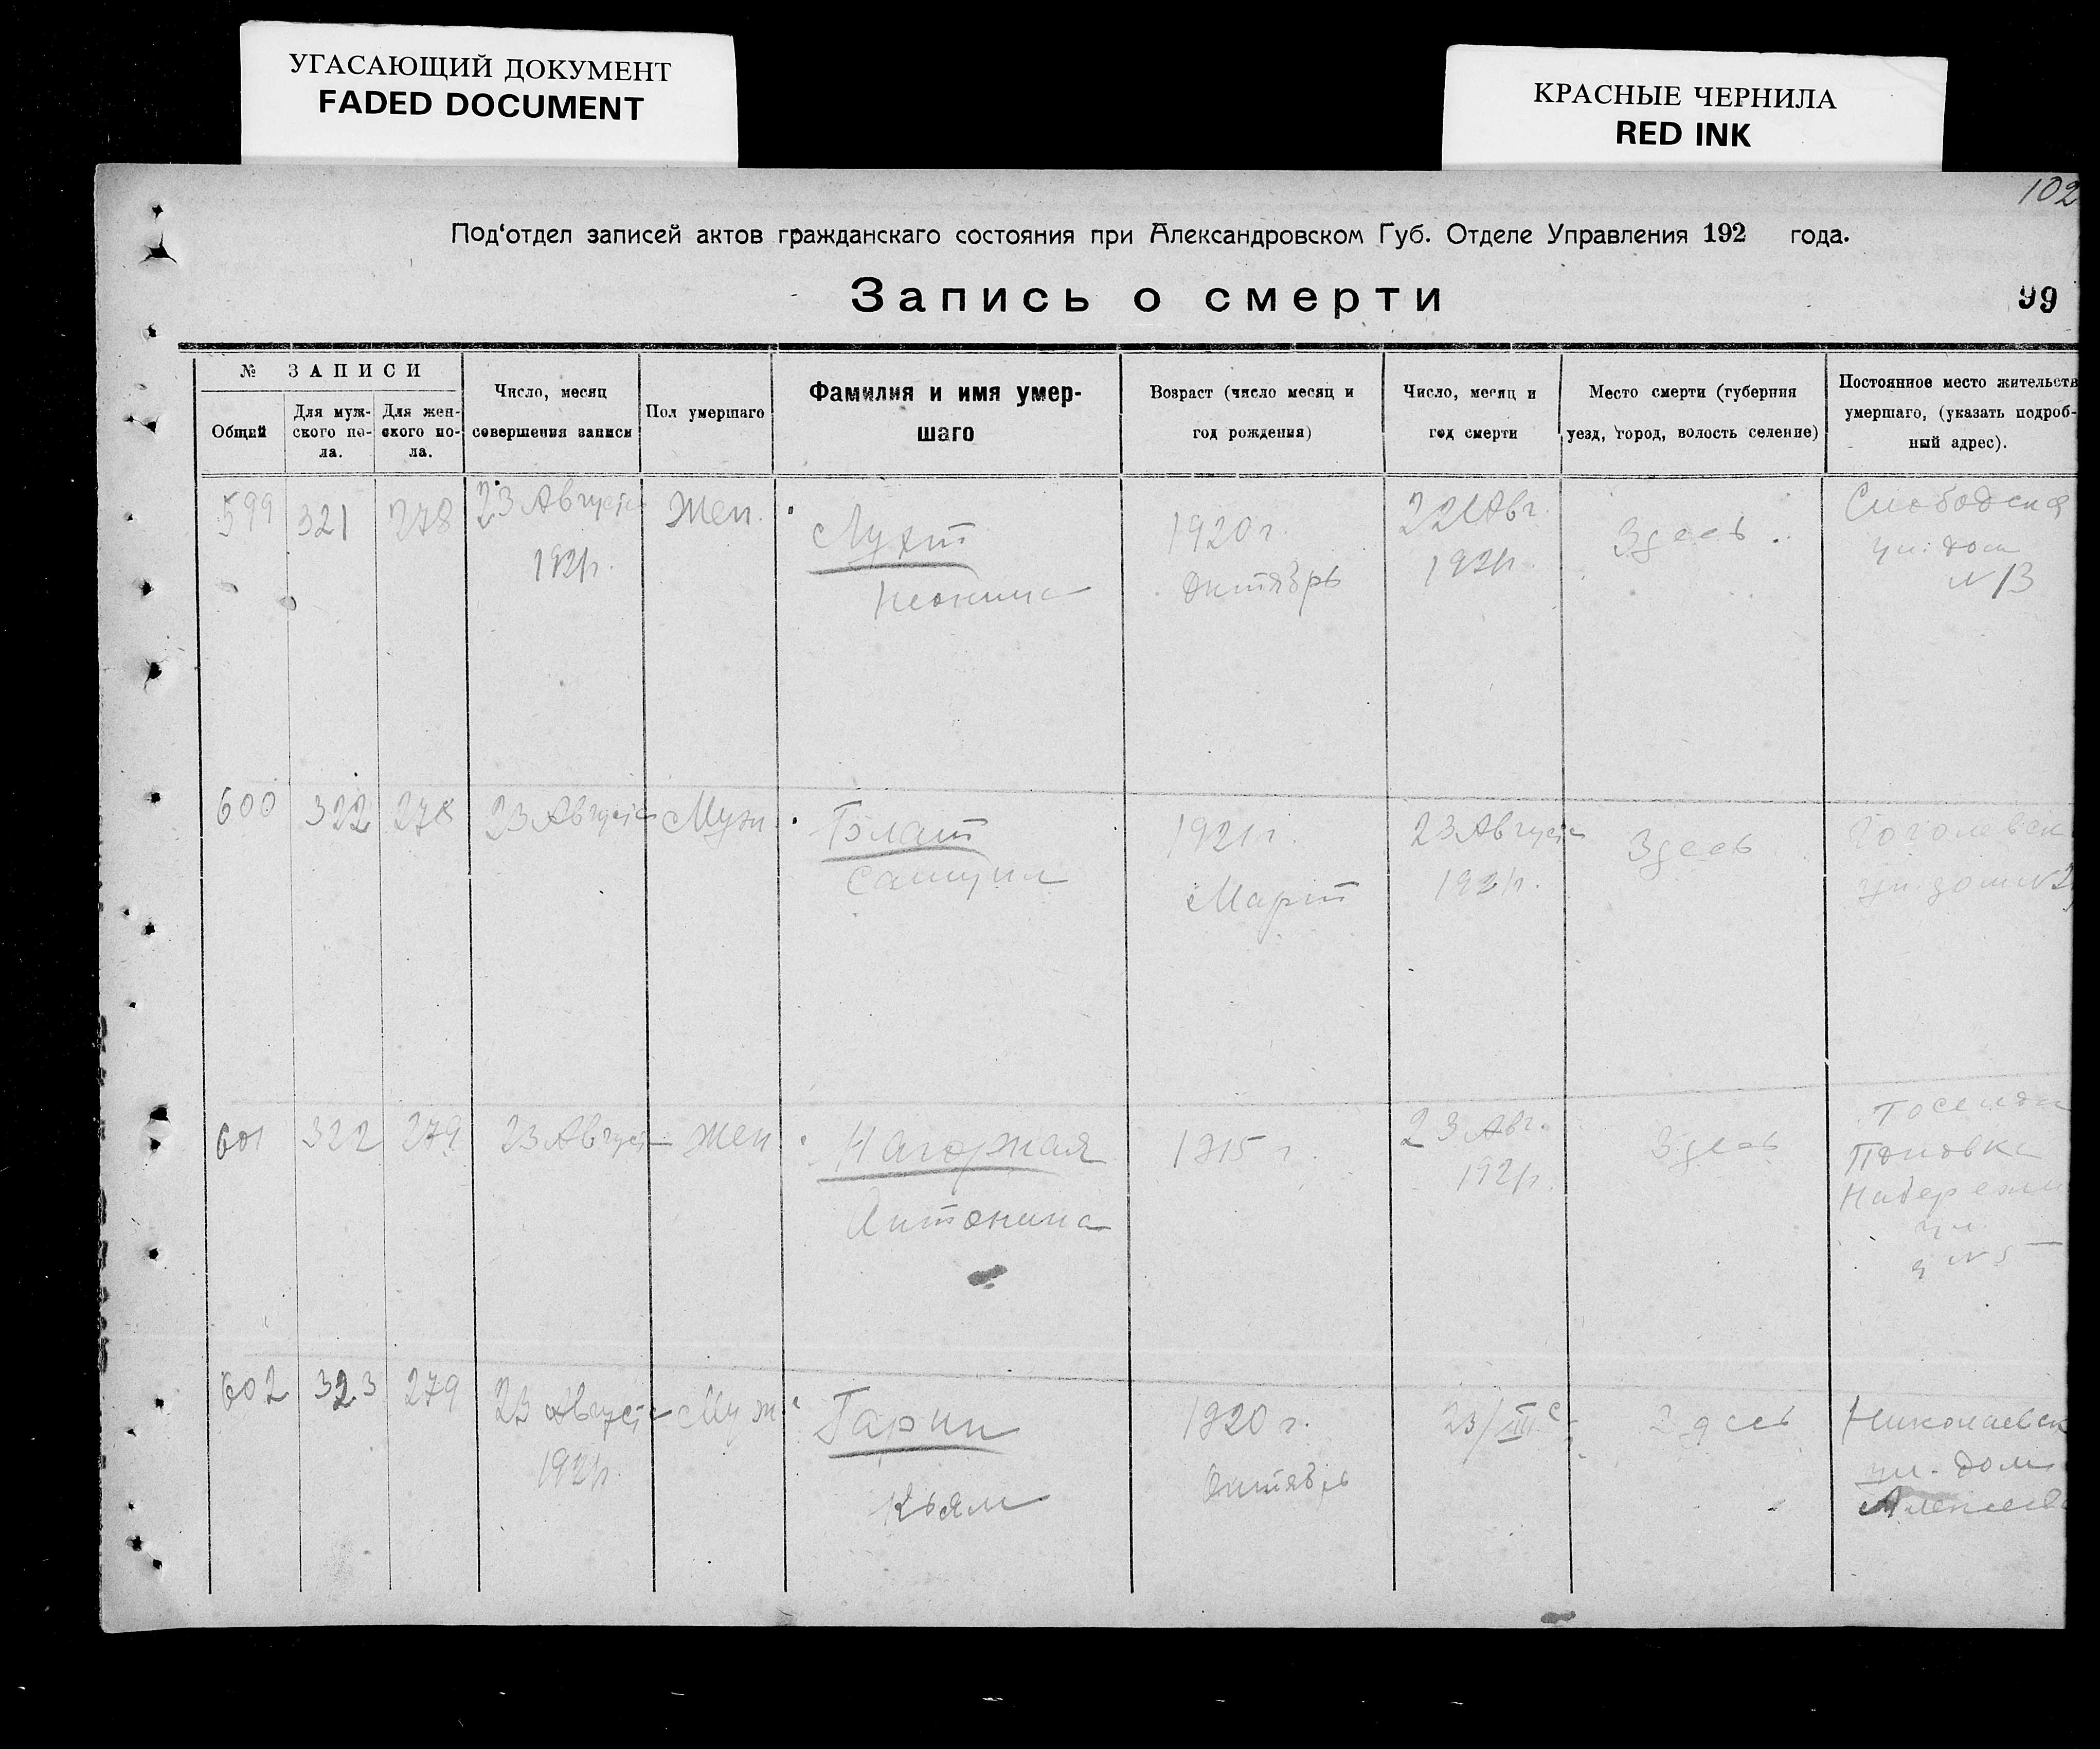 УГАСАЮЩИЙ ДОКУМЕНТ
FADED DOCUMENT
КРАСНЫЕ ЧЕРНИЛА
RED INK
102
Под‘отдел записей актов гражданскаго состояния при Александровском Губ. Отделе Управления 192 года.
Запись о смерти
99
№ ЗАПИСИ
Общий
Для муж-
ского по-
ла.
Для жен-
ского по-
ла.
Число, месяц
совершения записи
Пол умершаго
Фамилия и имя умер-
шаго
Возраст (число месяц и
год рождения)
Число, месяц и
год смерти
Место смерти (губерния
уезд, город, волость селение)
Постоянное место жительств
умершаго, (указать подроб-
ный адрес).
599
321
278
23 Августа
1921г.
Жен.
1920 г.
Октябрь
22 Авг.
1921г.
Здесь.
Слободска
ул. дом
№ 13
600
322
278
23 Августа
Муж.
Блат
Самуил
1921 г.
Март
23 Августа
1921г.
Здесь
Гоголевск
ул. дом № 2
601
322
279
23 Августа
Жен
Нагорная
Антонина
1915 г.
23 Авг.
1921г.
Здесь
ул.
д № 5
602
323
279
23 Августа
1921г.
Муж
Гарин
1920 г.
Октябрь
23/VIII с.
Здесь
Николаевск
ул. дом